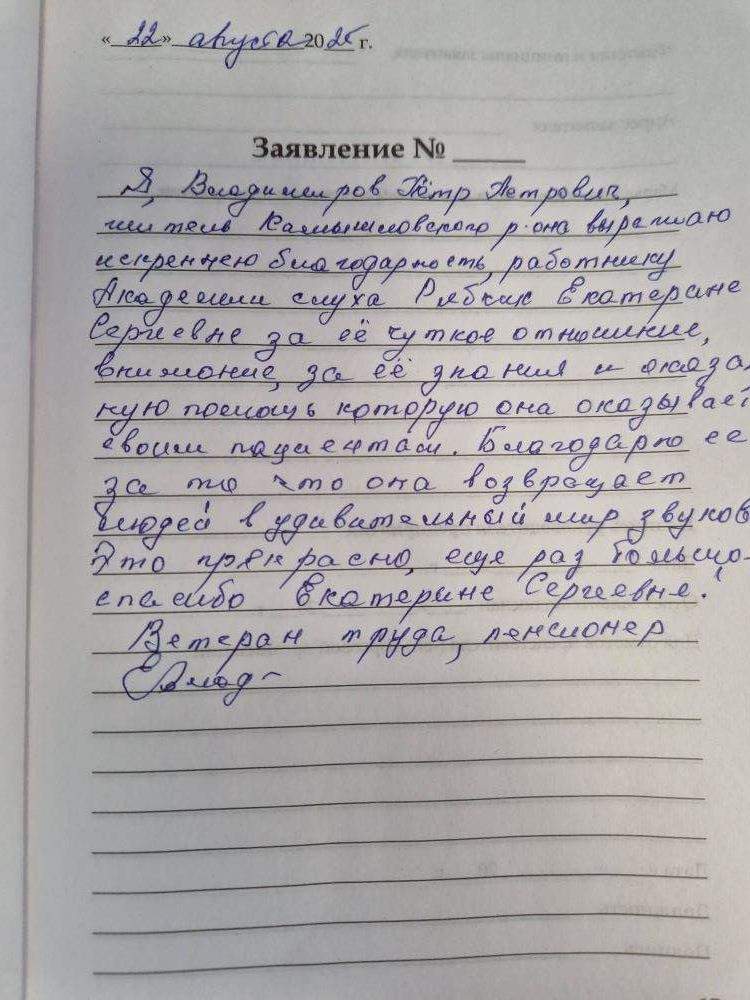 «22» августа 2025 г.
Заявление № ____
Я, Владимиров Пётр Петрович,
житель Камышловского р-она выражаю
искреннею благодарность, работнику
Академии слуха Рябчик Екатерине
Сергиевне за её чуткое отношение,
внимание, за её знания и оказан
ную помощь которую она оказывает
своим пациентам. Благодарю ее
за то что она возвращает
людей в удивительный мир звуков
Это прекрасно, еще раз большо-
спасибо Екатерине Сергиевне!
Ветеран труда, пенсионер
Влад-